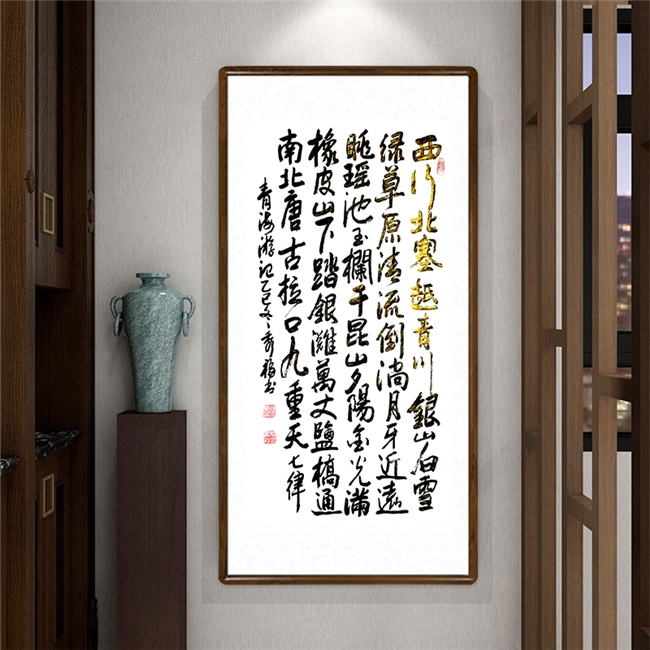 西行北塞越青川銀山白雪
绿草原清流倒淌月牙近遠
眺瑶池玉欄干昆山夕陽金光滿
橡皮山下踏銀灘萬丈鹽橋通
南北唐古拉口九重天七律
青海游记乙巳冬